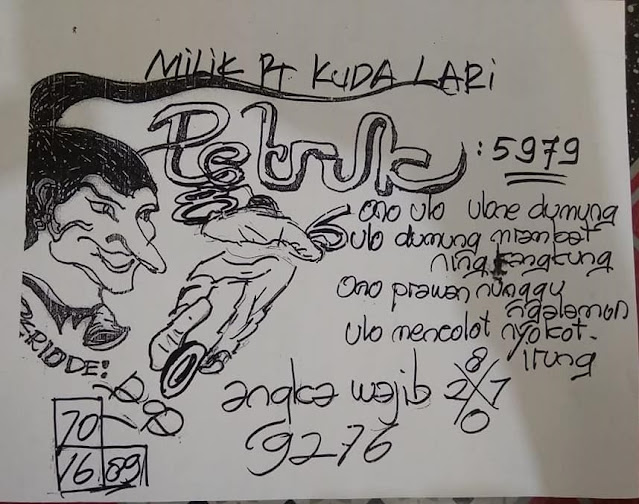 MILIK PT KUDA LARI
Petruk : 5979
ono ulo ulone dumung
ulo dumung mlambat
ning kangkung
ono prawan nunggu
ngalamun
ulo mencolot nyokot
irung
PERIODE:
8
angka wajib 2 X 7
0
70
16 89
9276